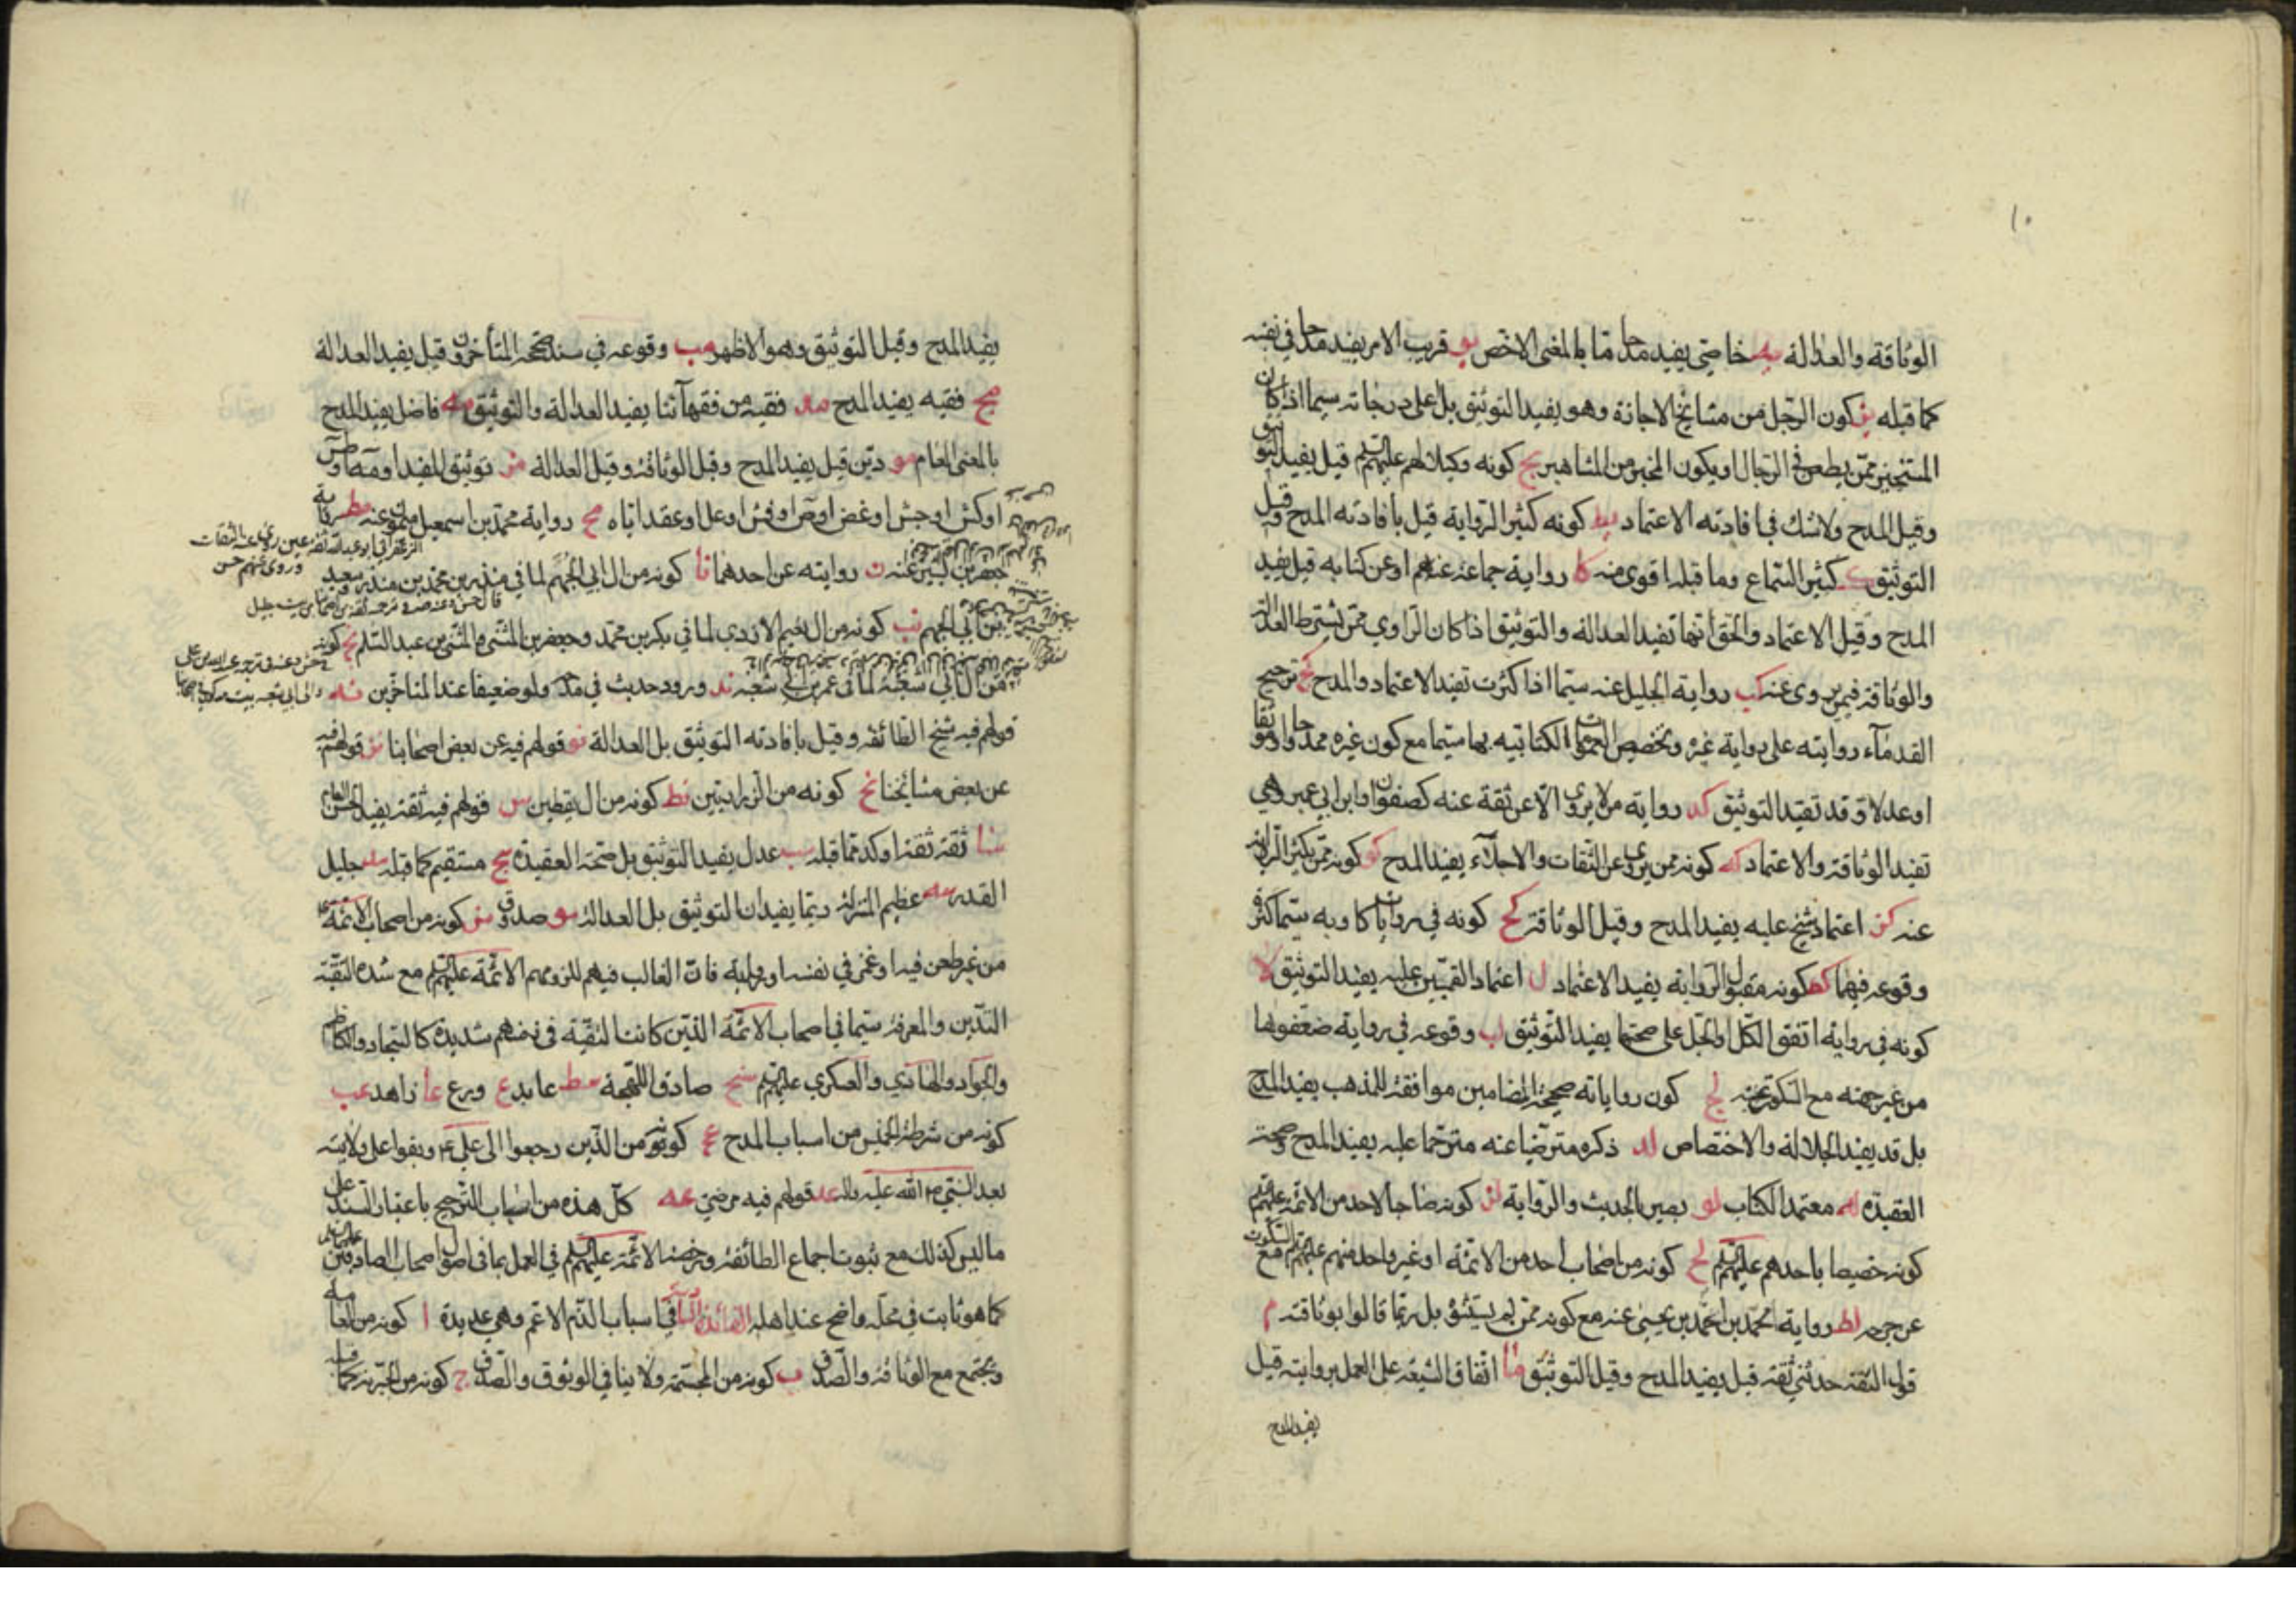 ١٠
الوثاقة والعدالة يه خاصّي يفيد مدحا ما بالمعنى الاخص يو قريب الامر يفيد مدحا في نفسه
كما قبله يز كون الرجل من مشايخ الاجازة وهو يفيد التوثيق بل على درجاته سيما اذا كان
المستجيز ممّن يطعن في الرجال او يكون المخبر من المشاهير يح كونه وكيلا لهم عليهم السلم قيل يفيد التوثيق
وقيل المدح ولا شك في افادته الاعتماد يط كونه كثير الرواية قيل بافادته المدح وقيل
التوثيق ك كثير السّماع وما قبله اقوى منه كا رواية جماعة عنهم او عن كتابه قيل يفيد
المدح وقيل الاعتماد والحق انها تفيد العدالة والتوثيق اذا كان الراوي ممّن يشترط العدالة
والوثاقة فيمن يروى عنه كب رواية الجليل عنه سيّما اذا كثرت تفيد الاعتماد والمدح كج ترجيح
القدماء روايته على رواية غيره وتخصيص العمومات الكتابية بها سيّما مع كون غيره ممدوحا او موثقا
او عدلا وقد تفيد التوثيق كد رواية من لا يروي الا عن ثقة عنه كصفوان وابن ابي عمير وهي
تفيد الوثاقة والاعتماد كه كونه ممن يروي عن الثقات والاجلاء يفيد المدح كو كونه ممن يكثر الرواية
عنه كز اعتماد شيخ عليه يفيد المدح وقيل الوثاقة كح كونه في روايات كا ويه سيّما كثرة
وقوعه فيهما كط كونه مقبول الرواية يفيد الاعتماد ل اعتماد القميين عليه يفيد التوثيق لا
كونه في رواية اتفق الكل او الجل على صحتها يفيد التوثيق لب وقوعه في رواية ضعّفوها
من غير جهته مع السكوت عنه لج كون رواياته صحيحة المضامين موافقة للمذهب يفيد المدح
بل قد يفيد الجلالة والاختصاص لد ذكره مترضّيا عنه مترحّما عليه يفيد المدح وصحة
العقيدة له معتمد الكتاب لو بصير بالحديث والرواية لز كونه صاحبا لاحد من الائمة عليهم السلم
كونه خصيصا باحدهم عليهم السلم لح كونه من اصحاب احد من الائمة او غير واحد منهم عليهم السلم مع السكوت
عن جرحه لط رواية محمد بن احمد بن يحيى عنه مع كونه ممّن لم يستثن بل ربما قالوا بوثاقته م
قول الثقة حدثني ثقة قيل يفيد المدح وقيل التوثيق ما اتفاق الشيعة على العمل بروايته قيل
يفيد المدح
١١
يفيد المدح وقيل التوثيق وهو الاظهر مب وقوعه في سند صححه المتأخرون وقيل يفيد العدالة
مج فقيه يفيد المدح مد فقيه من فقهآئنا يفيد العدالة والتوثيق مه فاضل يفيد المدح
بالمعنى العام مو ديّن قيل يفيد المدح وقيل الوثاقة وقيل العدالة مز توثيق المفيد او
او كش او جش او غض او او او عقد اياه مح رواية محمد بن اسمعيل بن ميمون عنه مط رواية
جعفر بن بشير عنه ن روايته عن احدهما نا كونه من ال ابي الجهم لما في منذر بن محمد بن منذر بن سعيد
بن ابي الجهم نب كونه من ال نعيم الازدي لما في بكر بن محمد وجعفر بن المثنى والمثنى بن عبد السلم نج كونه
من ال ابي شعبة لما في عمر بن ابي شعبة ند ورود حديث في مدحه ولو ضعيفا عند المتاخرين نه
قولهم فيه شيخ الطائفة وقيل بافادته التوثيق بل العدالة نو قولهم فيه عن بعض اصحابنا نز قولهم فيه
عن بعض مشائخنا نح كونه من الزراريين نط كونه من ال يقطين س قولهم فيه ثقة يفيد الحسن العام
سا ثقة ثقة اوكد مما قبله سب عدل يفيد التوثيق بل صحة العقيدة سج مستقيم كما قبله سد جليل
القدر سه عظيم المنزلة ربما يفيدان التوثيق بل العدالة سو صدوق سز كونه من اصحاب الائمة
من غير طعن فيه او غمز في نفسه او روايته فان الغالب فيهم للزومهم الائمة عليهم السلم مع شدة التقية
التديّن والمعرفة سيّما في اصحاب الائمة الذين كانت التقية في زمنهم شديدة كالسجاد والكاظم
والجواد والهادي والعسكري عليهم السلم سح صادق اللهجة سط عابد ع ورع عا زاهد عب
كونه من شرطة الخميس من اسباب المدح عج كونه من الذين رجعوا الى علي ع وبقوا على ولايته
بعد النبي صلى الله عليه واله عد قولهم فيه مرضي عه كل هذه من اسباب الترجيح باعتبار السند على
ما ليس كذلك مع ثبوت اجماع الطائفة ورخصة الائمة عليهم السلم في العمل بما في اصول اصحاب الصادقين عليهما السلم
كما هو ثابت في محله واضح عند اهله الفائدة الثانية في اسباب الذم الاعم وهي عديدة ا كونه من العامة
ويجتمع مع الوثاقة والصدق ب كونه من المجسّمة ولا ينافي الوثوق والصدق ج كونه من الجبرية كما قبله